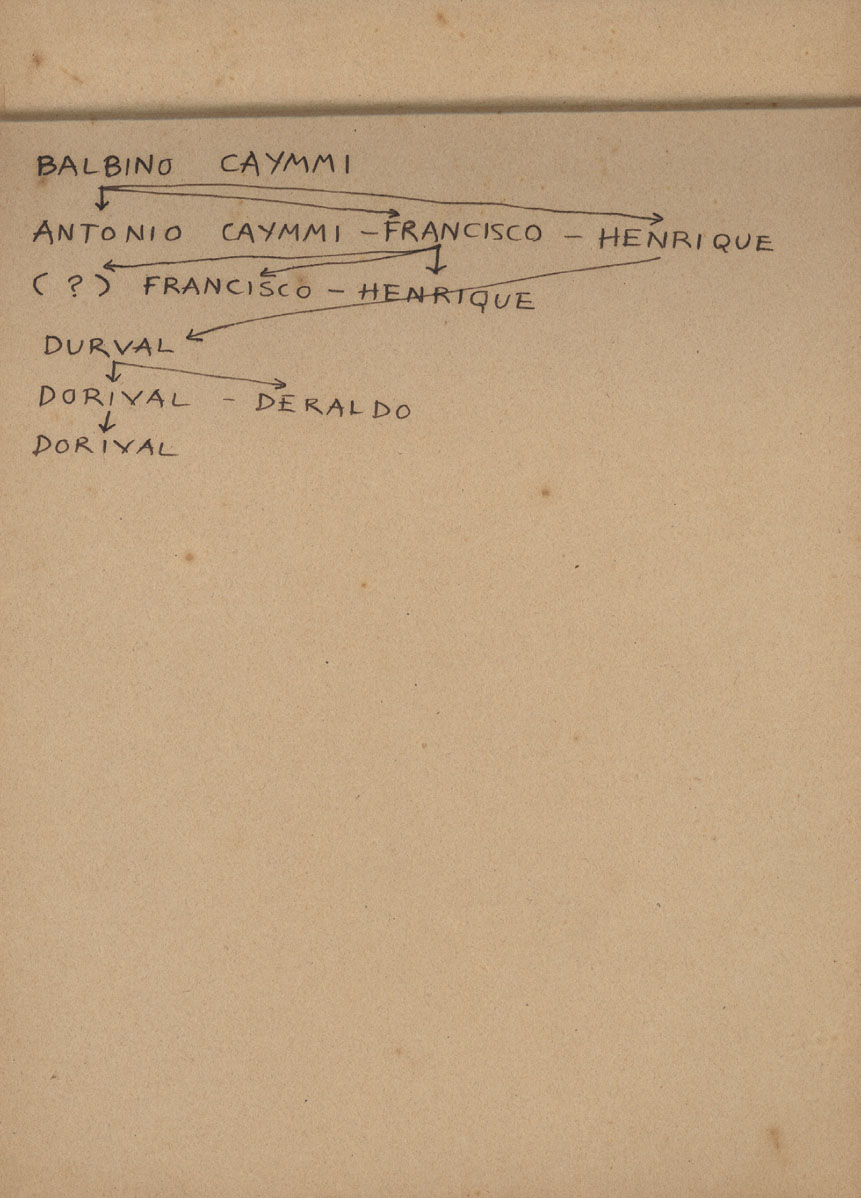 BALBINO CAYMMI
ANTONIO CAYMMI - FRANCISCO - HENRIQUE
( ? ) FRANCISCO - HENRIQUE
DURVAL
DORIVAL - DERALDO
DORIVAL